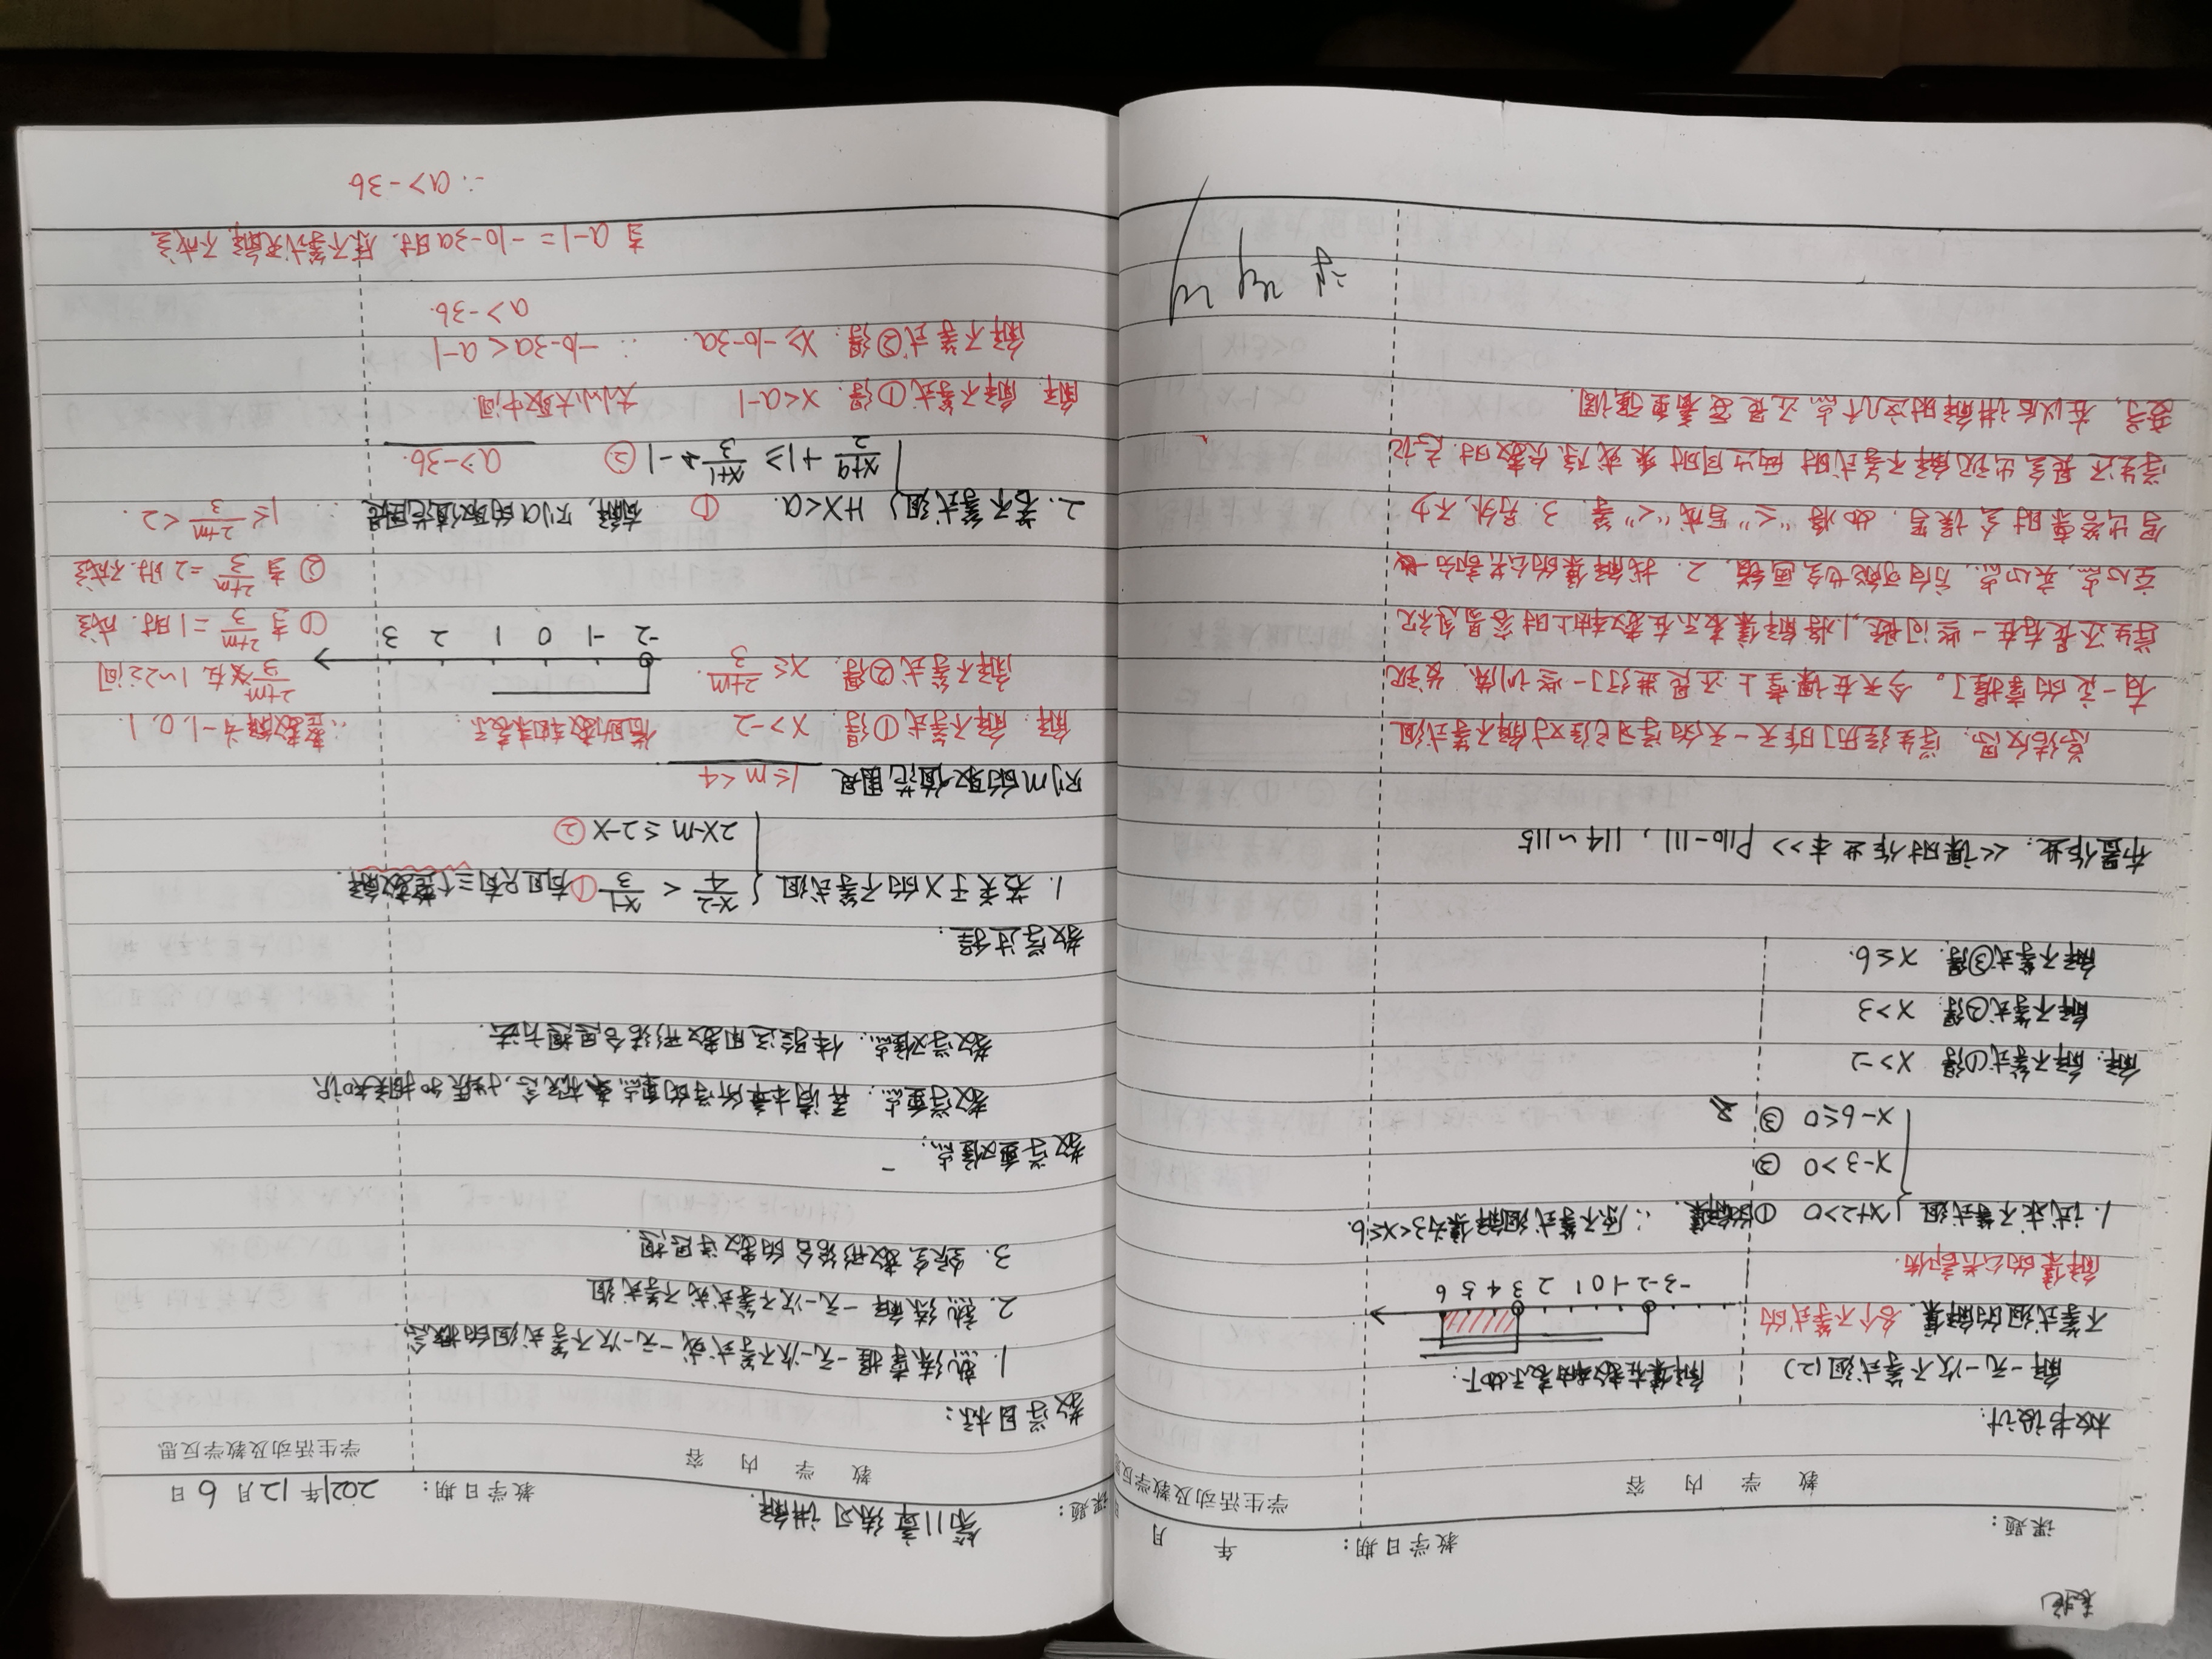 课题: 教学日期: 年 月
教 学 内 容 学生活动及教学反思
板书设计:
解一元一次不等式组(2) 解集在数轴表示如下:
不等式组的解集: 各个不等式的
解集的公共部分.
-3 -2 -1 0 1 2 3 4 5 6
1. 试求不等式组 { x+2>0 ① 的解集. ∴原不等式组解集为3<x≤6.
x-3>0 ②
x-6≤0 ③
解: 解不等式①得 x>-2
解不等式②得: x>3
解不等式③得: x≤6.
布置作业: <<课时作业本>> P110-111, 114~115
总结反思: 学生经历了昨天一天的学习已经对解不等式组
有一定的掌握了。今天在课堂上还是进行了一些训练, 发现
学生还是存在一些问题, 1. 将解集表示在数轴上时容易忽视
空心点, 实心点, 方向可能也会画错. 2. 找解集的公共部分
写出答案时会误写. 如将“≤”写成“<”等 3. 另外, 不少
学生还是会出现解不等式时两边同时乘或除负数时忘记
变号, 在以后讲解时这几个点还是要着重强调.
课题: 第11章练习讲解. 教学日期: 2021年12月6日
教 学 内 容 学生活动及教学反思
教学目标:
1. 熟练掌握一元一次不等式或一元一次不等式组的概念.
2. 熟练解一元一次不等式或不等式组
3. 综合数形结合的数学思想.
教学重难点:
教学重点: 弄清本章所学的重点概念, 性质和相关知识
教学难点: 体验运用数形结合思想方法.
教学过程:
1. 若关于x的不等式组 { x-2/4 < x-1/3 ① 有且只有三个整数解.
2x-m≤2-x ②
则m的取值范围是 1≤m<4
解: 解不等式①得 x>-2 借助数轴来表示. ∴整数解为-1, 0, 1.
解不等式②得: x≤ 2+m/3. 2+m/3 落在1~2之间
-2 -1 0 1 2 3
① 当 2+m/3 =1时. 成立
② 当 2+m/3 =2时. 不成立
∴ 1≤ 2+m/3 <2.
2. 若不等式组 { 1+x<a. ① 有解, 则a的取值范围是
x+9/2 +1≥ x+1/3 -1 ② a>-36.
解: 解不等式①得: x<a-1 大小小大取中间.
解不等式②得: x≥-b-3a. ∴ -b-3a<a-1
a>-36.
当a-1=-b-3a时. 原不等式无解, 不成立
∴ a>-36